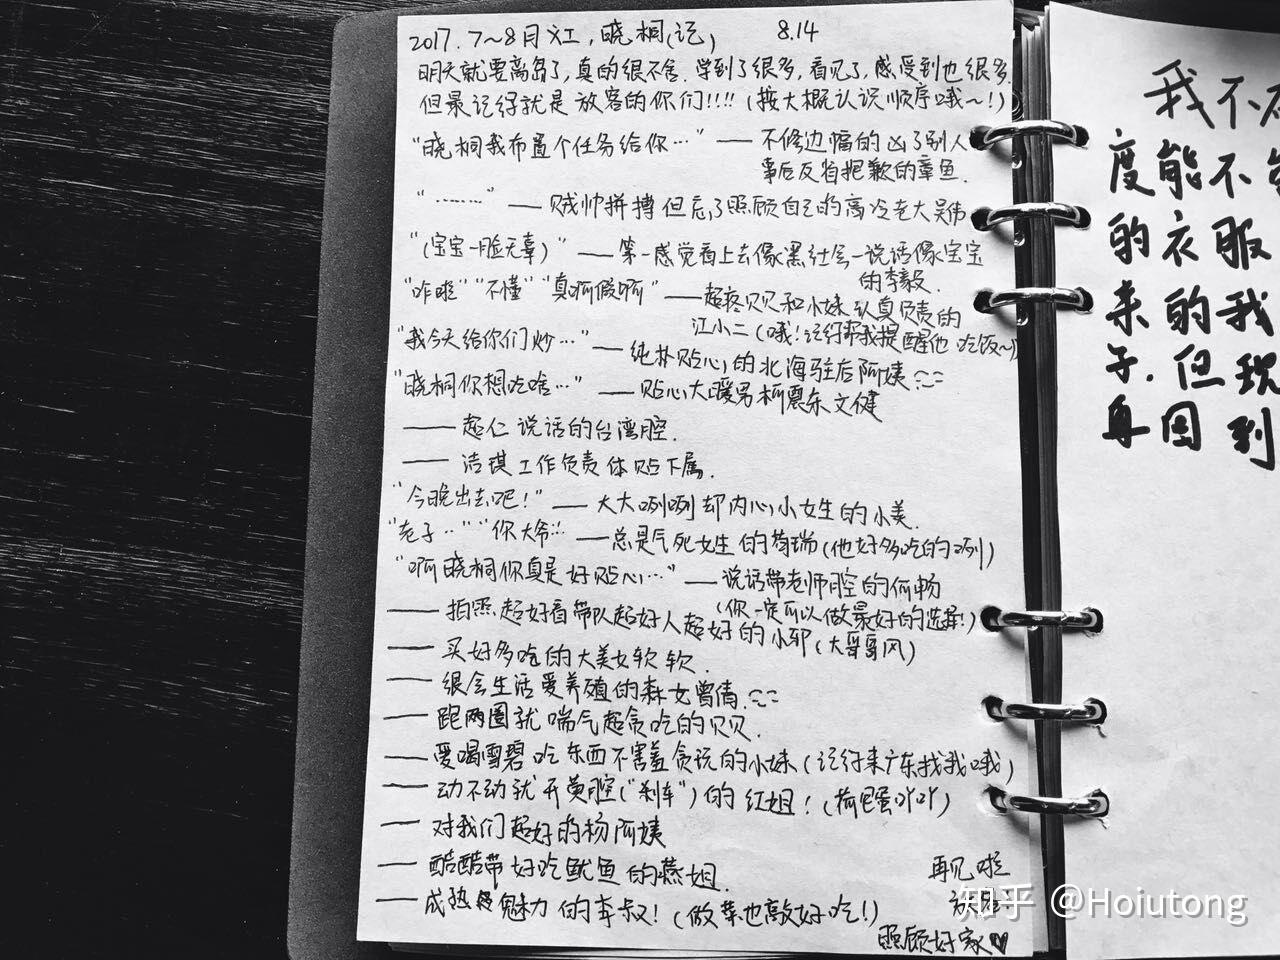 2017.7~8月 江, 晓桐(记) 8.14
明天就要离岛了,真的很不舍.学到了很多,看见了,感受到也很多.
但最记得就是放客的你们!!!! (按大概认识顺序哦~!)
"晓桐我布置个任务给你…" —— 不修边幅的凶了别人
事后反省抱歉的章鱼.
"……" —— 贼帅拼搏但忘了照顾自己的高冷老大吴伟
"(宝宝一脸无辜)" —— 第一感觉看上去像黑社会一说话像宝宝
的李毅.
"咋啦" "不懂" "真啊假啊" —— 超疼贝贝和小妹认真负责的
江小二(哦!记得帮我提醒他吃饭~)
"我今天给你们炒…" —— 纯朴贴心的北海驻店阿姨
"晓桐你想吃啥…" —— 贴心大暖男柯震东文健
—— 超仁说话的台湾腔.
—— 洁琪工作负责体贴下属.
"今晚出去吧!" —— 大大咧咧却内心小女生的小美.
"老子…" "你大爷…" —— 总是气死女生的荀瑞(他好多吃的咧)
"啊晓桐你真是好贴心…" —— 说话带老师腔的何畅
(你一定可以做最好的选择!)
—— 拍照超好看带队超好人超好的小邪(大哥哥风)
—— 买好多吃的大美女软软.
—— 很会生活爱养殖的森女曾倩.
—— 跑两圈就喘气超贪吃的贝贝.
—— 爱喝雪碧吃东西不害羞贪玩的小妹(记得来广东找我哦)
—— 动不动就开黄腔("刹车")的红姐!(荷包蛋吖吖)
—— 对我们超好的杨阿姨
—— 酷酷带好吃鱿鱼的燕姐.
—— 成熟魅力的李叔!(做菜也敲好吃!)
再见啦
照顾好家♥
我不
度能不
的衣服
来的我
子.但现
再因到
知乎 @Hoiutong